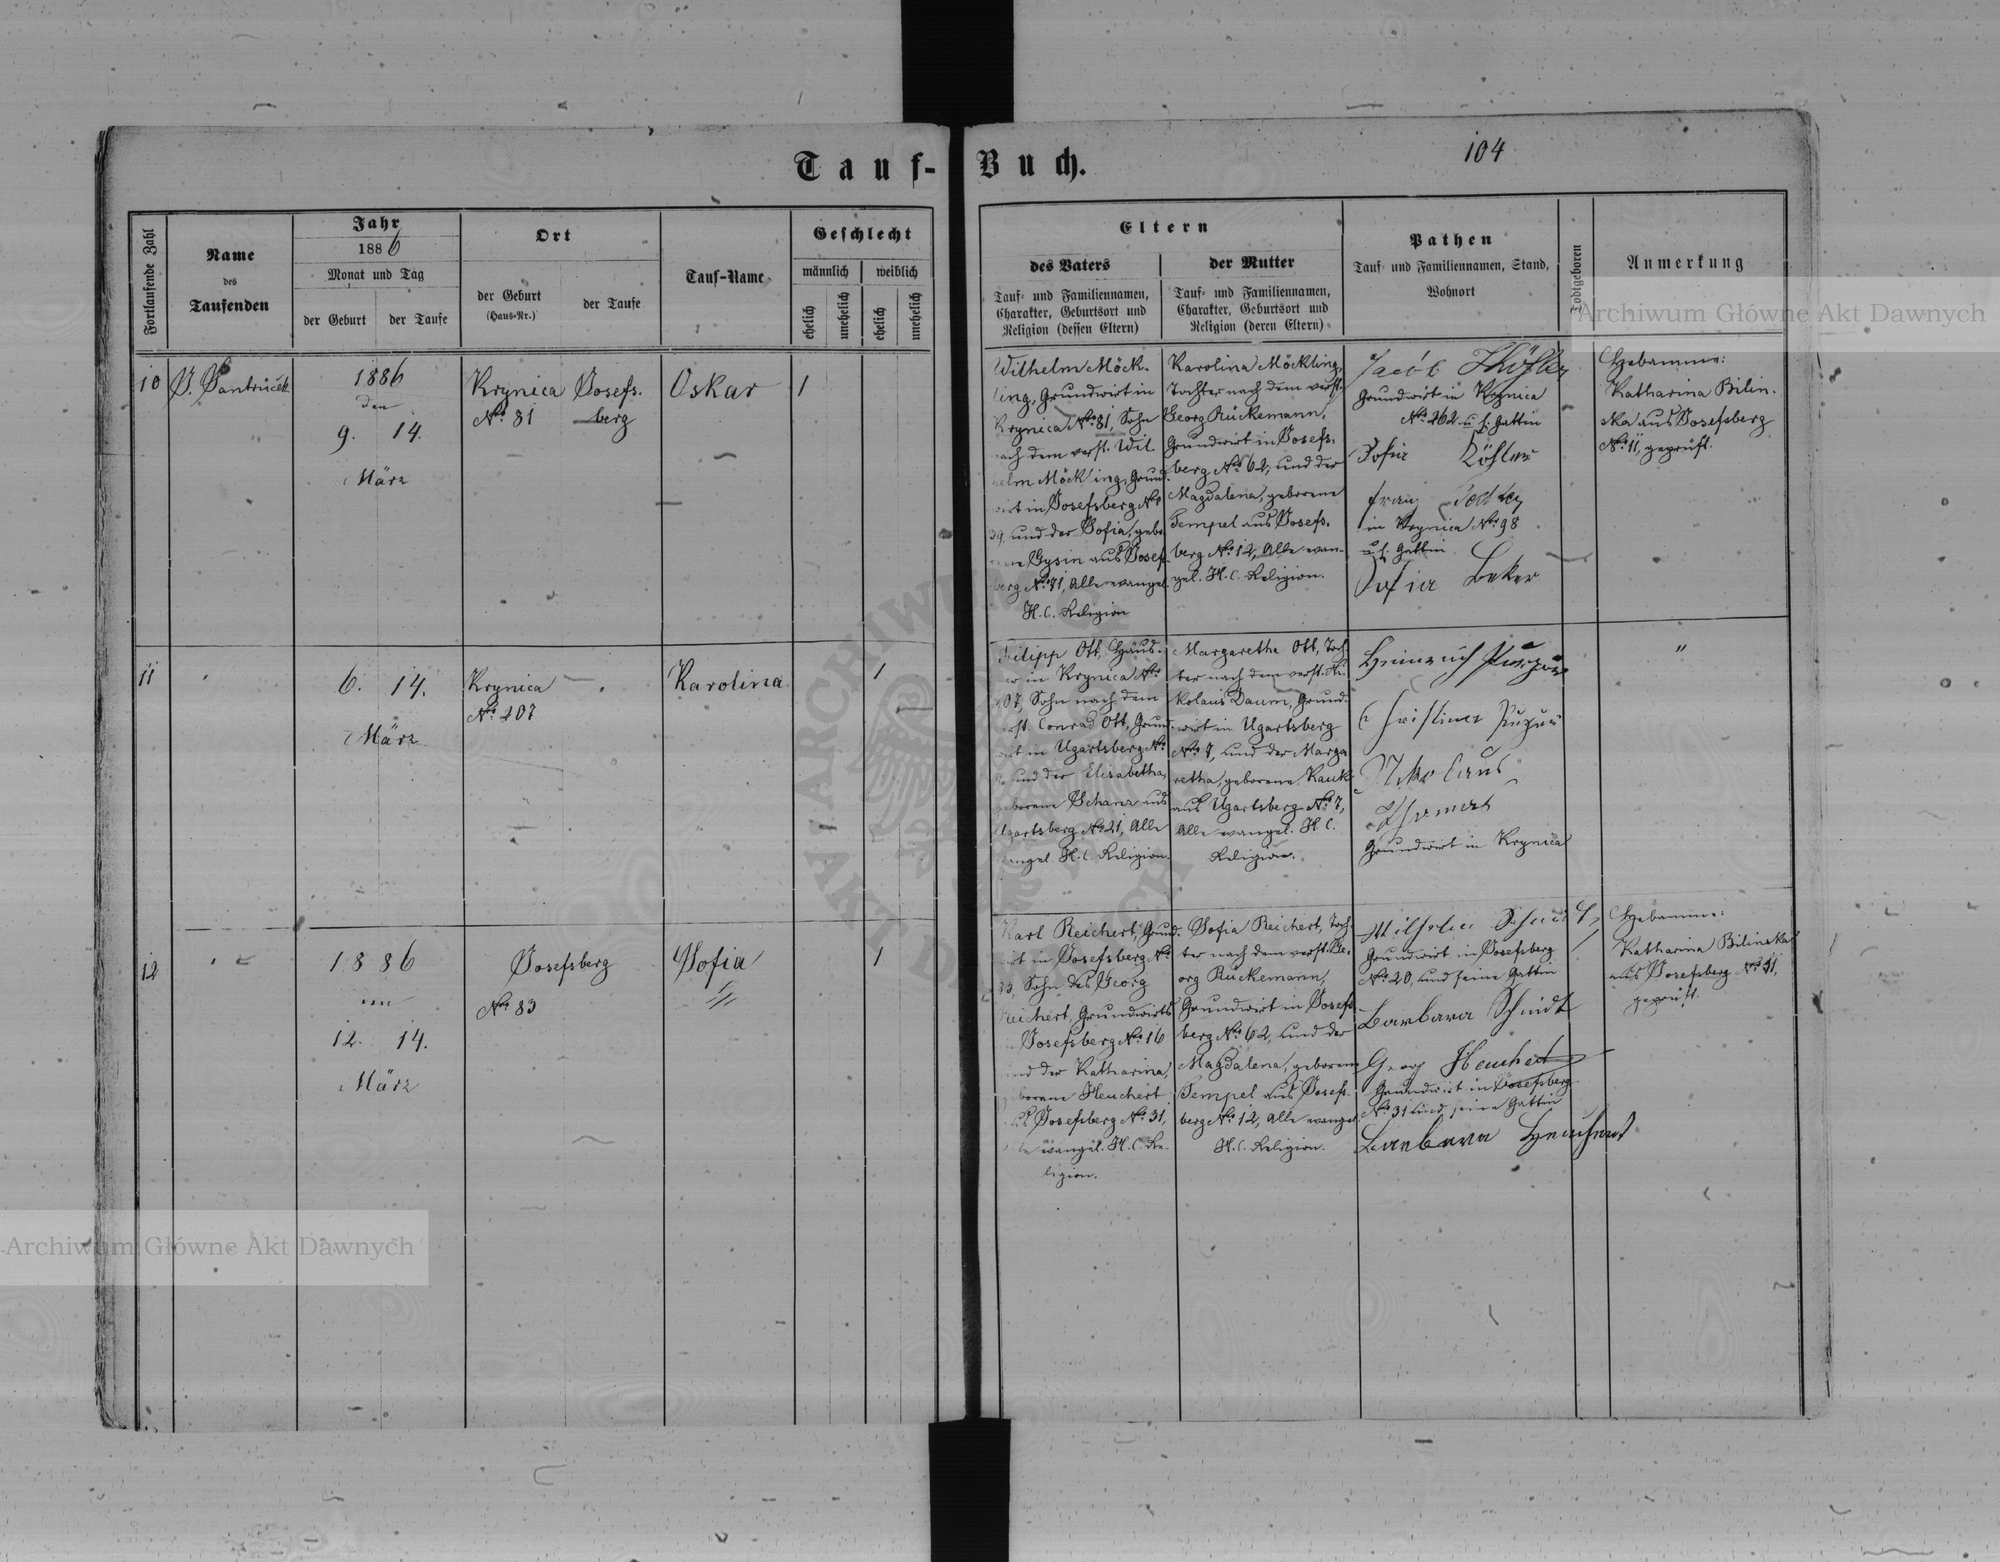 Tauf-Buch.
104
Fortlaufende Zahl
Name
des
Taufenden
Jahr
1886
Monat und Tag
der Geburt
der Taufe
Ort
der Geburt
(Haus-Nr.)
der Taufe
Tauf-Name
Geschlecht
männlich
weiblich
ehelich
unehelich
ehelich
unehelich
Eltern
des Vaters
Tauf- und Familiennamen,
Charakter, Geburtsort und
Religion (dessen Eltern)
der Mutter
Tauf- und Familiennamen,
Charakter, Geburtsort und
Religion (deren Eltern)
Pathen
Tauf- und Familiennamen, Stand,
Wohnort
Todtgeboren
Anmerkung
10
1886
den
9. 14.
März
Krynica
No 81
Josefs-
berg
Oskar
1
Wilhelm Möck-
ling, Grundwirt in
Krynica No 81, Sohn
nach dem verst. Wil-
helm Möckling, Grund-
wirt in Josefsberg No
39, und der Sofia, gebo-
rene Gysin aus Josefs-
berg No 71, Alle evangel.
H. C. Religion
Karolina Möckling,
Tochter nach dem verst.
Georg Rückemann,
Grundwirt in Josefs-
berg No 62, und der
Magdalena, geborene
Tempel aus Josefs-
berg No 12, Alle evan-
gel. H. C. Religion.
Jacob
Grundwirt in Krynica
No 262 u. s. Gattin
Sofia Köhler
Franz
in Krynica No 98
u. s. Gattin
Sofia Beker
Hebamme:
Katharina Bilin-
ska aus Josefsberg
No 11, geprüft.
11
6. 14.
März
Krynica
No 207
Karolina
1
Filipp Ott, Häus-
ler in Krynica No
207, Sohn nach dem
verst. Conrad Ott, Grund-
wirt in Ugartsberg No
und der Elisabetha,
geborene Schanz aus
Ugartsberg No 21, Alle
evangel. H. C. Religion.
Margaretha Ott, Toch-
ter nach dem verst. Ni-
kolaus Daum, Grund-
wirt in Ugartsberg
No 7, und der Marga-
retha, geborene Kauk
aus Ugartsberg No 7,
Alle evangel. H. C.
Religion.
Heinrich
Christina
Nikolaus
Thomas
Grundwirt in Krynica
"
12
" "
1886
den
12. 14.
März
Josefsberg
No 83
Sofia
1
Karl Reichert, Grund-
wirt in Josefsberg No
83, Sohn des Georg
Reichert, Grundwirts
in Josefsberg No 16
und der Katharina,
geborene Heuchert
aus Josefsberg No 31,
Alle evangel. H. C. Re-
ligion.
Sofia Reichert, Toch-
ter nach dem verst. Ge-
org Rückemann,
Grundwirt in Josefs-
berg No 62, und der
Magdalena, geborene
Tempel aus Josefs-
berg No 12, Alle evangel.
H. C. Religion.
Wilhelm Schmidt
Grundwirt in Josefsberg
No 20, und seine Gattin
Barbara Schmidt
Georg Heuchert
Grundwirt in Josefsberg
No 31 und seine Gattin
Barbara Heuchert
Hebamme:
Katharina Bilinska
aus Josefsberg No 11,
geprüft.
Archiwum Główne Akt Dawnych
Archiwum Główne Akt Dawnych